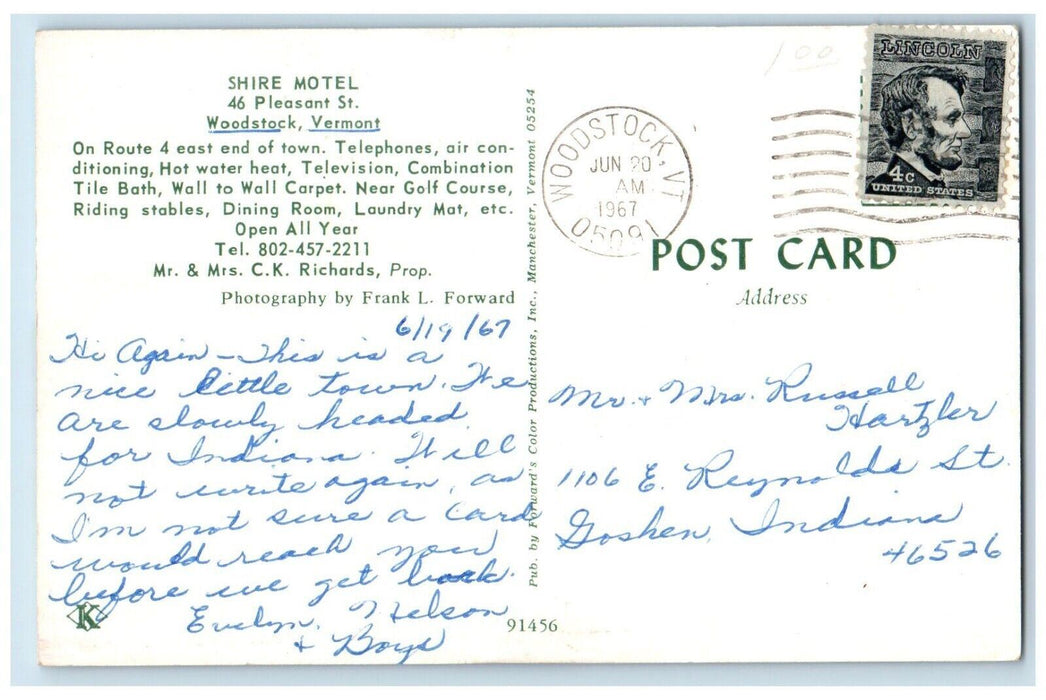 SHIRE MOTEL
46 Pleasant St.
Woodstock, Vermont
On Route 4 east end of town. Telephones, air con-
ditioning, Hot water heat, Television, Combination
Tile Bath, Wall to Wall Carpet. Near Golf Course,
Riding stables, Dining Room, Laundry Mat, etc.
Open All Year
Tel. 802-457-2211
Mr. & Mrs. C.K. Richards, Prop.
Photography by Frank L. Forward
6/19/67
Hi Again - This is a
nice little town. We
are slowly headed
for Indiana. Will
not write again, as
I'm not sure a card
would reach you
before we get back.
Evelyn, Nelson
& Boys
K
91456
Pub. by Forward's Color Productions, Inc., Manchester, Vermont 05254
WOODSTOCK, VT
JUN 20
AM
1967
05091
1 00
LINCOLN
4c
UNITED STATES
POST CARD
Address
Mr. & Mrs. Russell
Hartzler
1106 E. Reynolds St.
Goshen, Indiana
46526